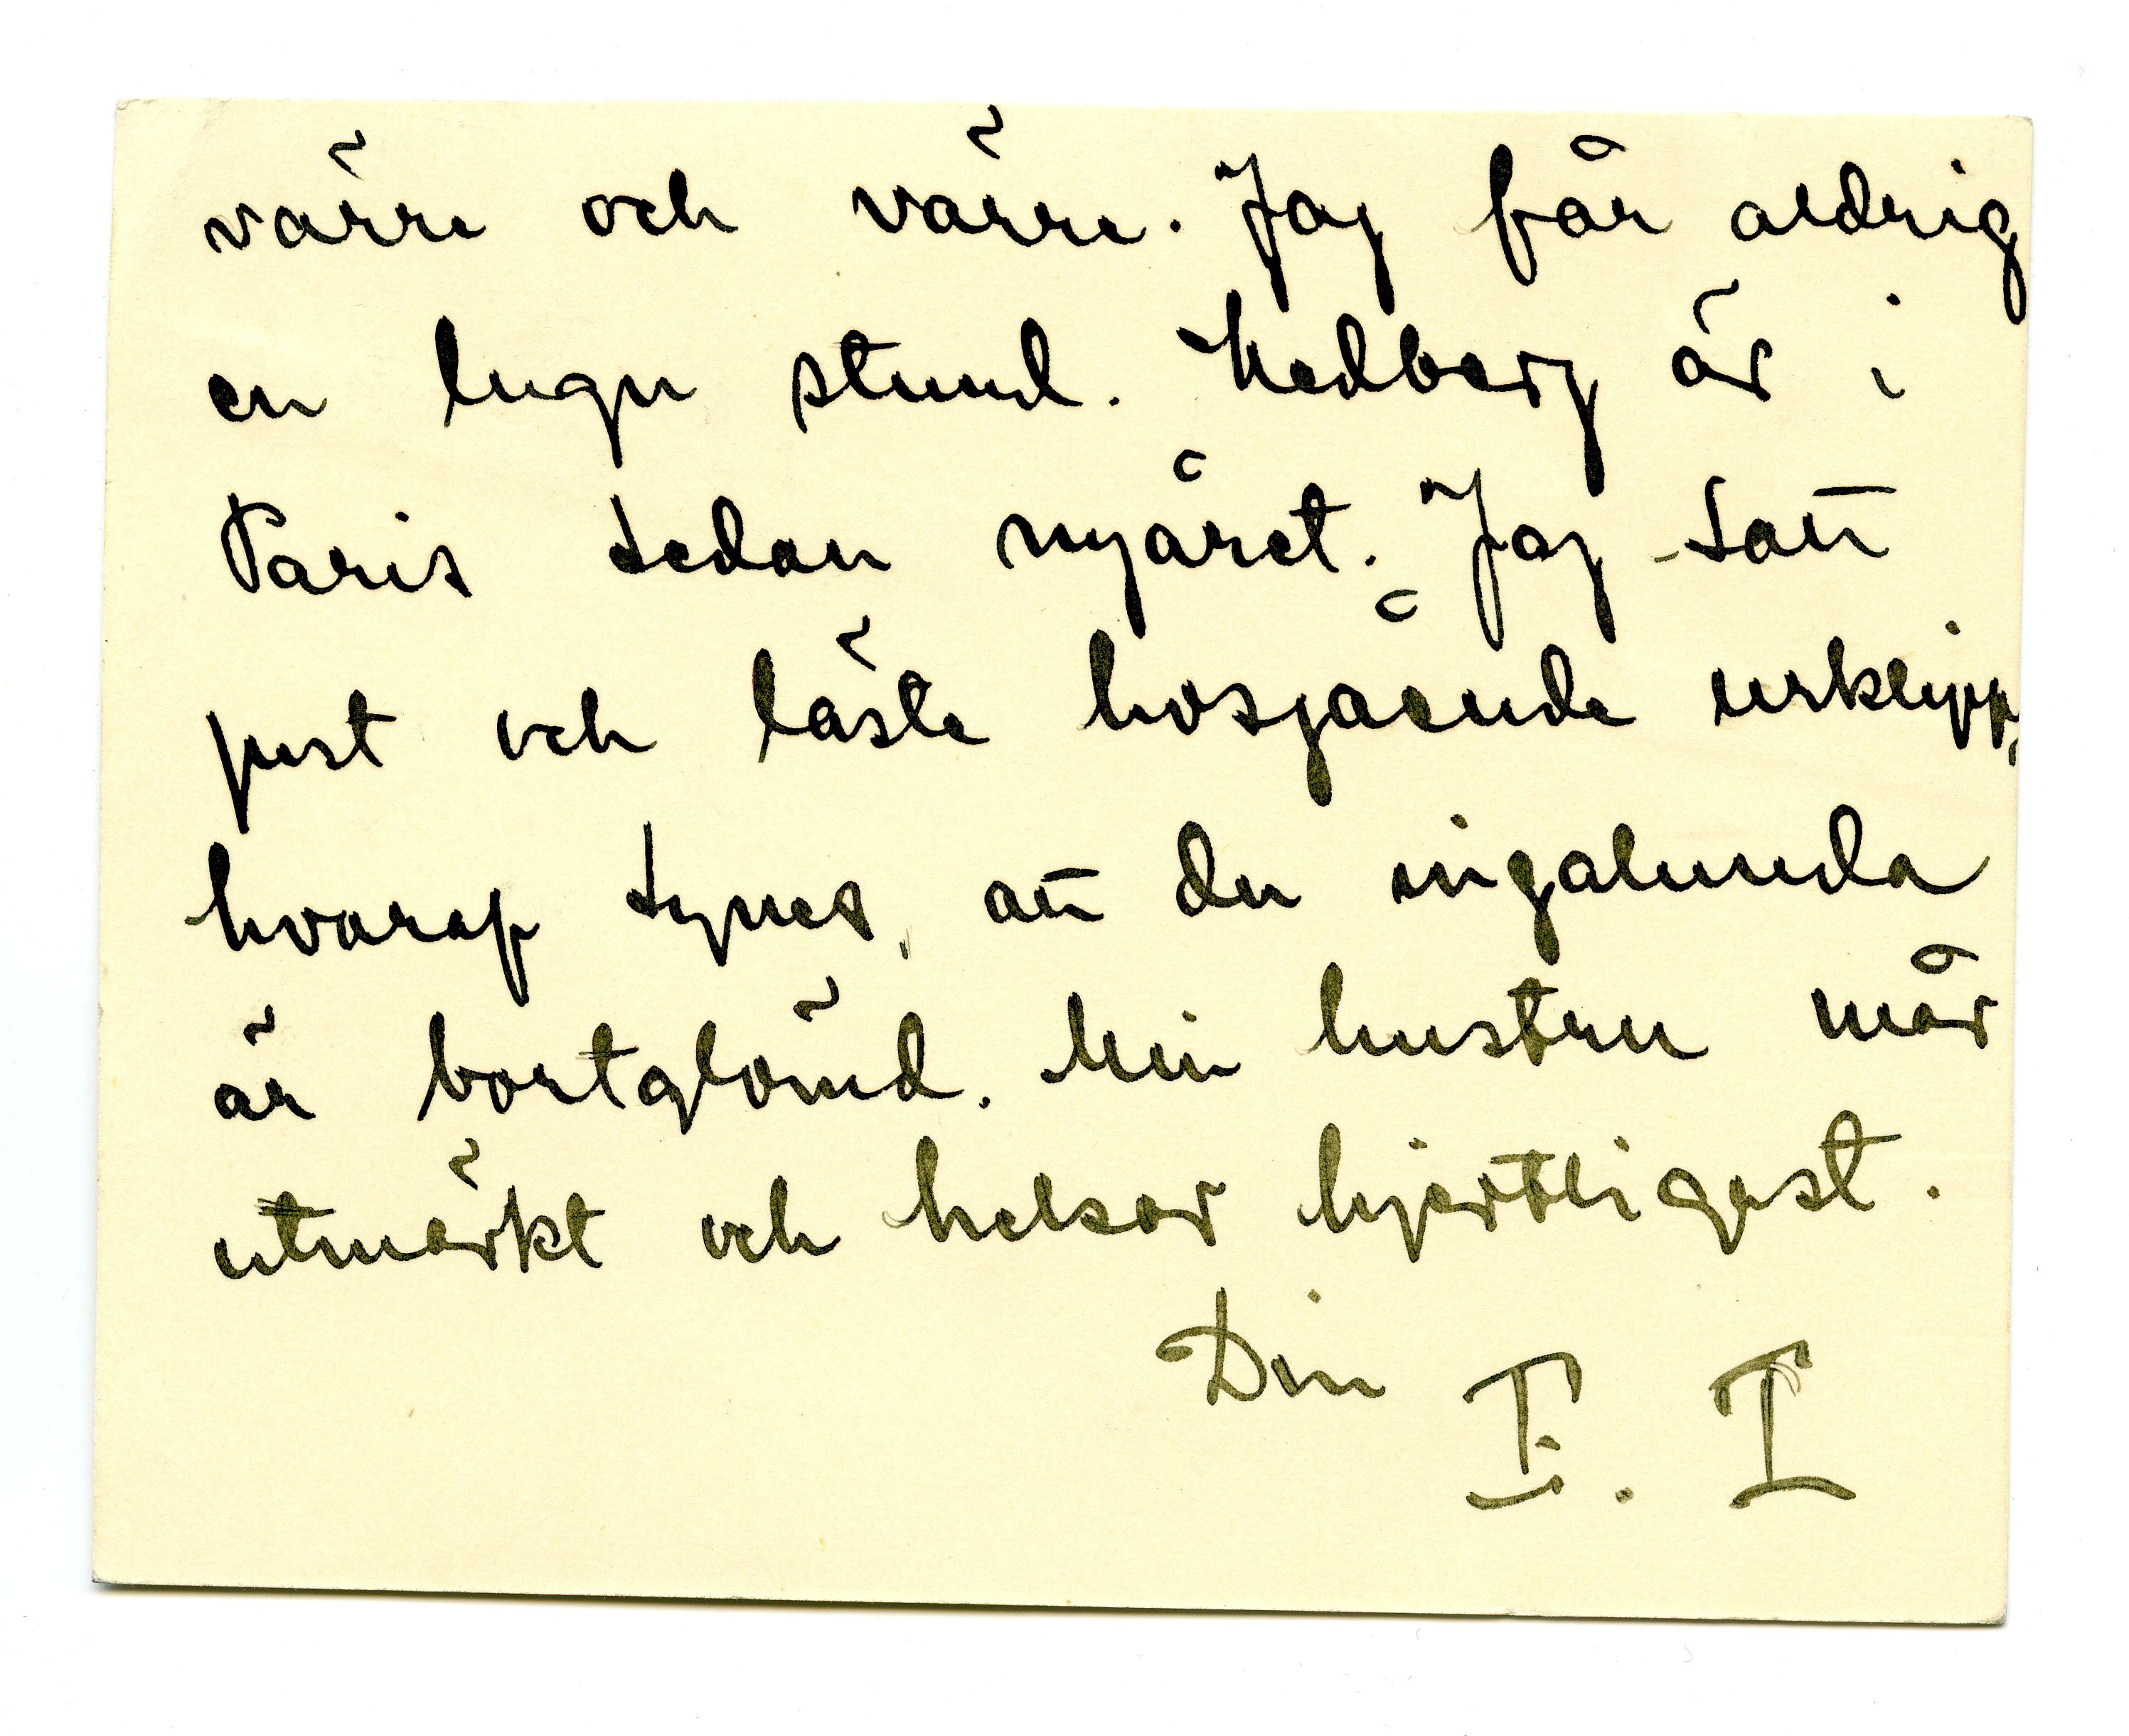 värre och värre. Jag får aldrig
en lugn stund. Hedberg är i
Paris sedan nyåret. Jag satt
just och läste hosgående urklipp,
hvaraf synes, att du ingalunda
är bortglömd. Min hustru mår
utmärkt och helsar hjertligast.
Din T. I